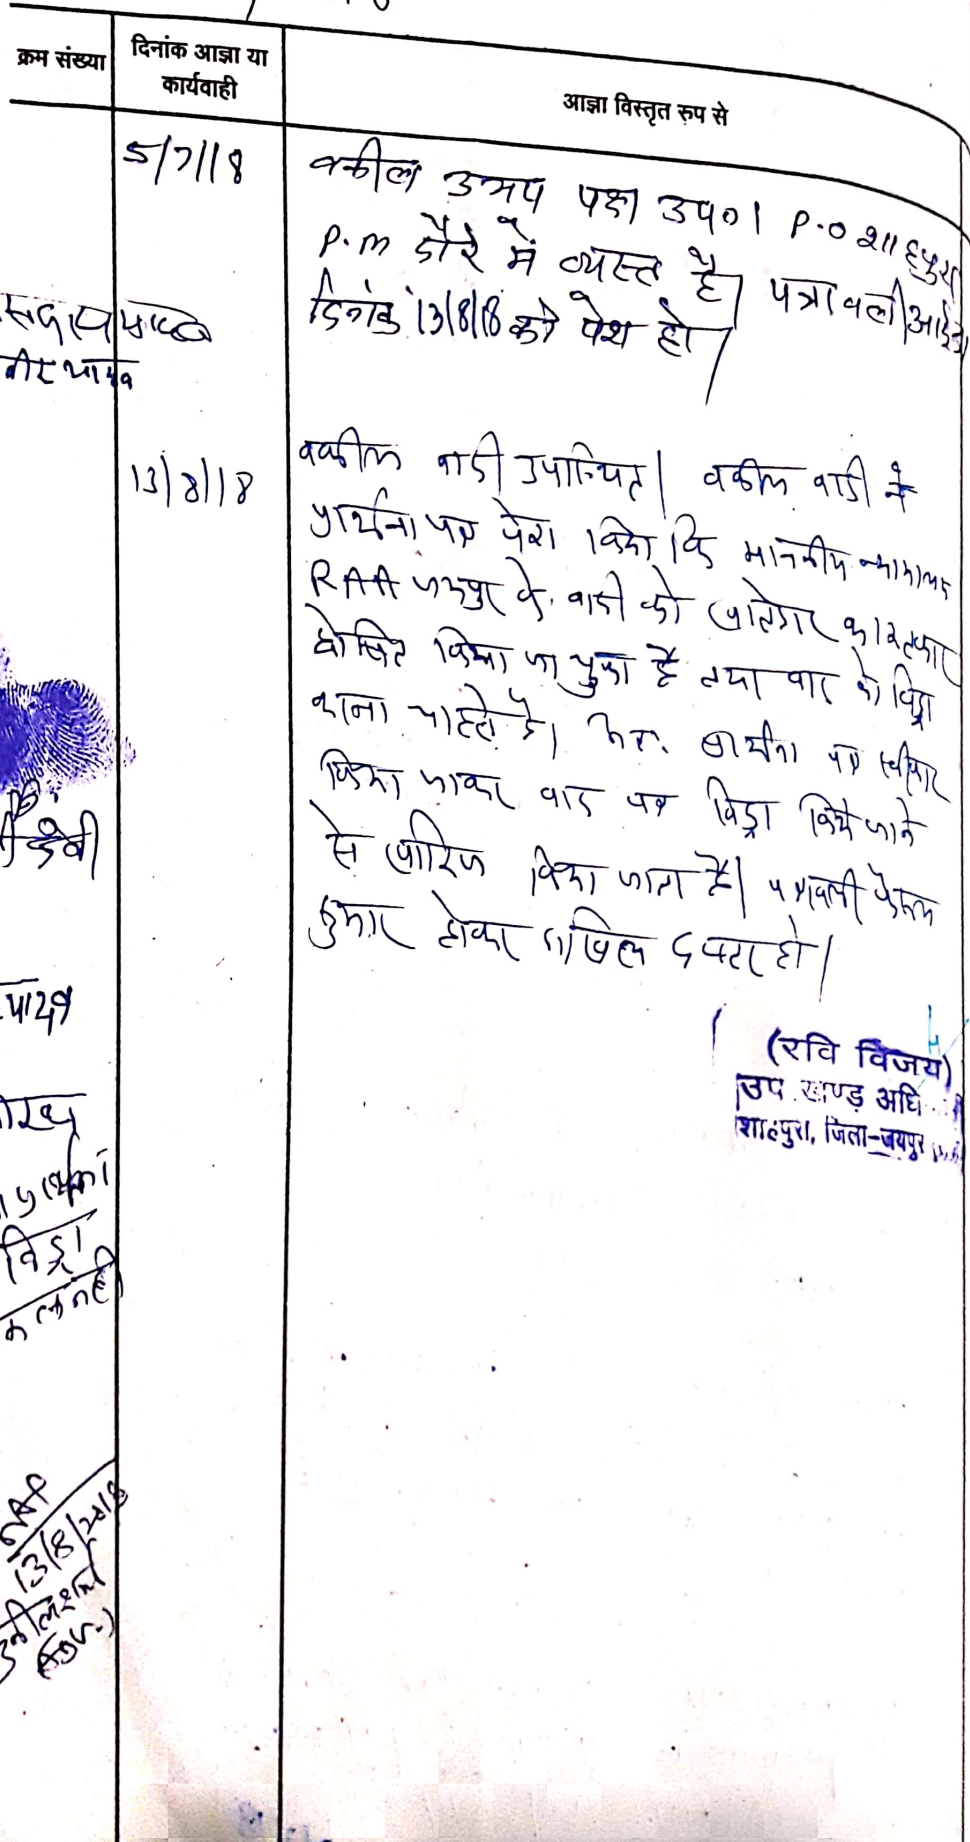 क्रम संख्या
दिनांक आज्ञा या
कार्यवाही
आज्ञा विस्तृत रुप से
5/7/18
वकील उभय पक्ष उप०। P.O शाहपुरा
P.m दौरे में व्यस्त है। पत्रावली
दिनांक 13/8/18 को पेश हो।
13/8/18
वकील वादी उपस्थित। वकील वादी ने
प्रार्थना पत्र पेश किया कि माननीय न्यायालय
RAA जयपुर के वादी को खातेदार काश्तकार
घोषित किया जा चुका है तथा वाद को विड्रा
करना चाहते है। अतः प्रार्थना पत्र स्वीकार
किया जाकर वाद पत्र विड्रा किये जाने
से खारिज किया जाता है। पत्रावली फैसल
शुमार होकर दाखिल दफ्तर हो।
(रवि विजय)
उप खण्ड अधि
शाहपुरा, जिला-जयपुर
देवी
विड्रा
13/8/2018
(Adv.)